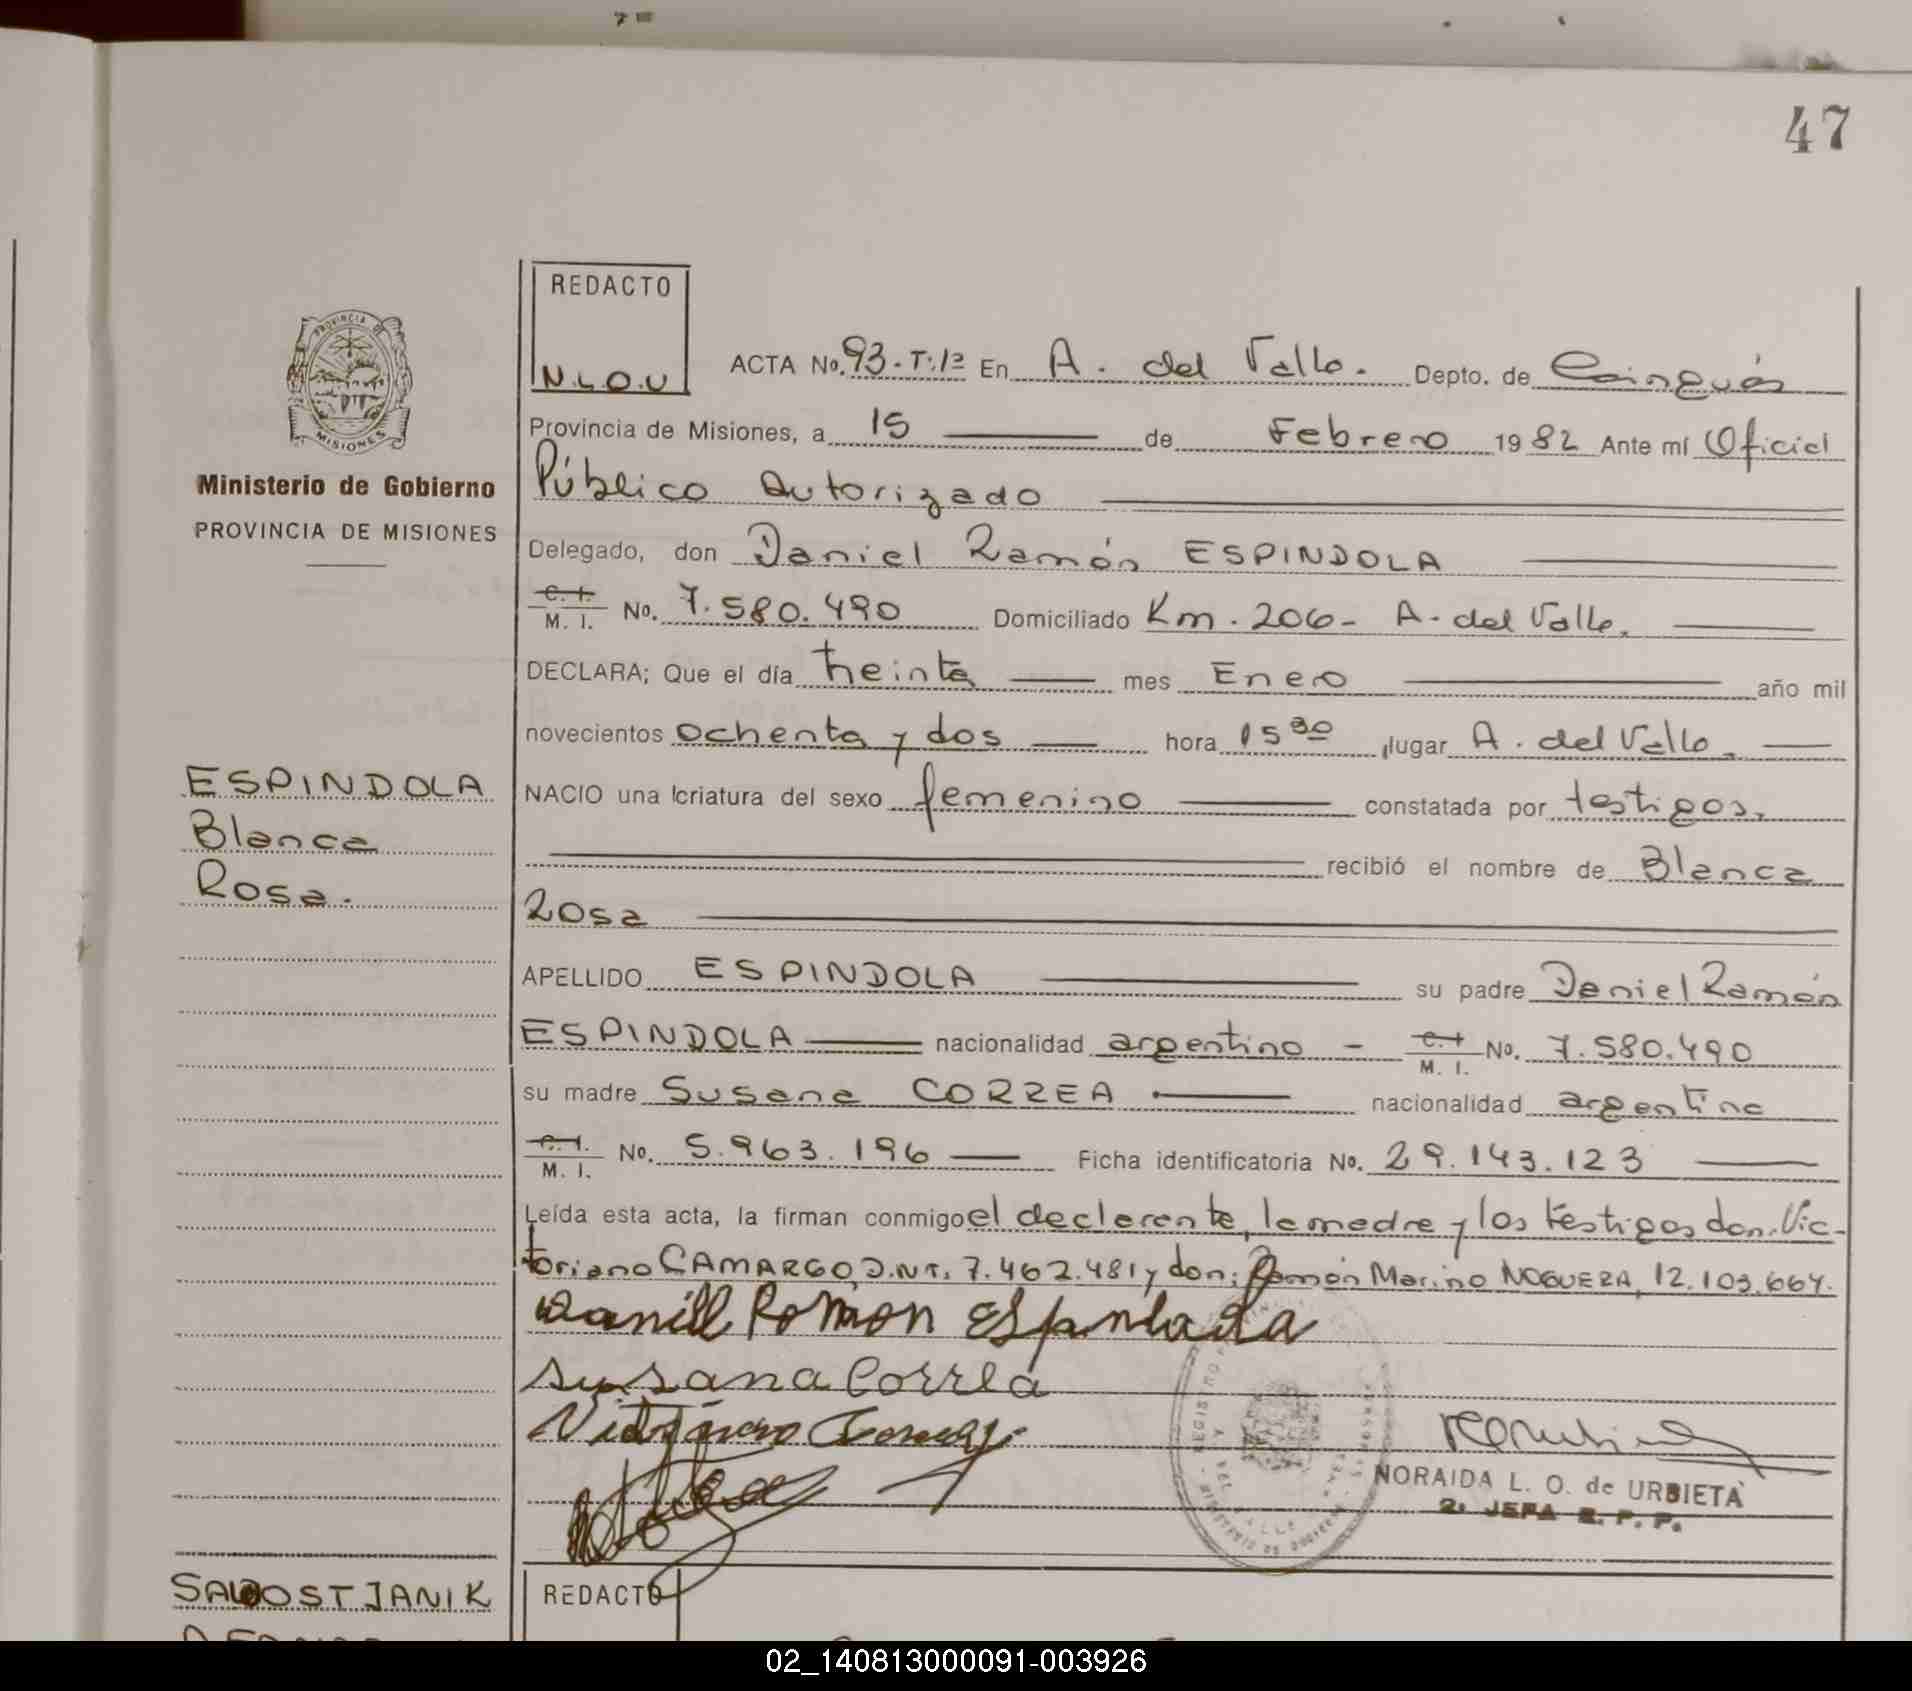 47
REDACTO
N.L.O.U
PROVINCIA DE
MISIONES
Ministerio de Gobierno
PROVINCIA DE MISIONES
ACTA No. 93. T: 1ª En A. del Valle. Depto. de Cainguás
Provincia de Misiones, a 15 de Febrero 1982 Ante mí Oficial
Público Autorizado
Delegado, don Daniel Ramón ESPINDOLA
C. I. M. I. No. 7.580.490 Domiciliado Km. 206- A. del Valle.
DECLARA; Que el día treinta mes Enero año mil
novecientos ochenta y dos hora 15 30 ,lugar A. del Valle.
ESPINDOLA
Blanca
Rosa.
NACIO una criatura del sexo femenino constatada por testigos.
recibió el nombre de Blanca
Rosa
APELLIDO ESPINDOLA su padre Daniel Ramón
ESPINDOLA nacionalidad argentino - C. I. M. I. No. 7.580.490
su madre Susana CORREA nacionalidad argentina
C. I. M. I. No. 5.963.196 Ficha identificatoria No. 29.143.123
Leída esta acta, la firman conmigo el declarante, la madre y los testigos don: Vic-
toriano CAMARGO, D.N.I. 7.462.481 y don: Ramón Marino NOGUERA, 12.103.664.
Susana Correa
NORAIDA L. O. de URBIETA
2. JEFA R. P. P.
SAWOSTJANIK
REDACTO
02_140813000091-003926